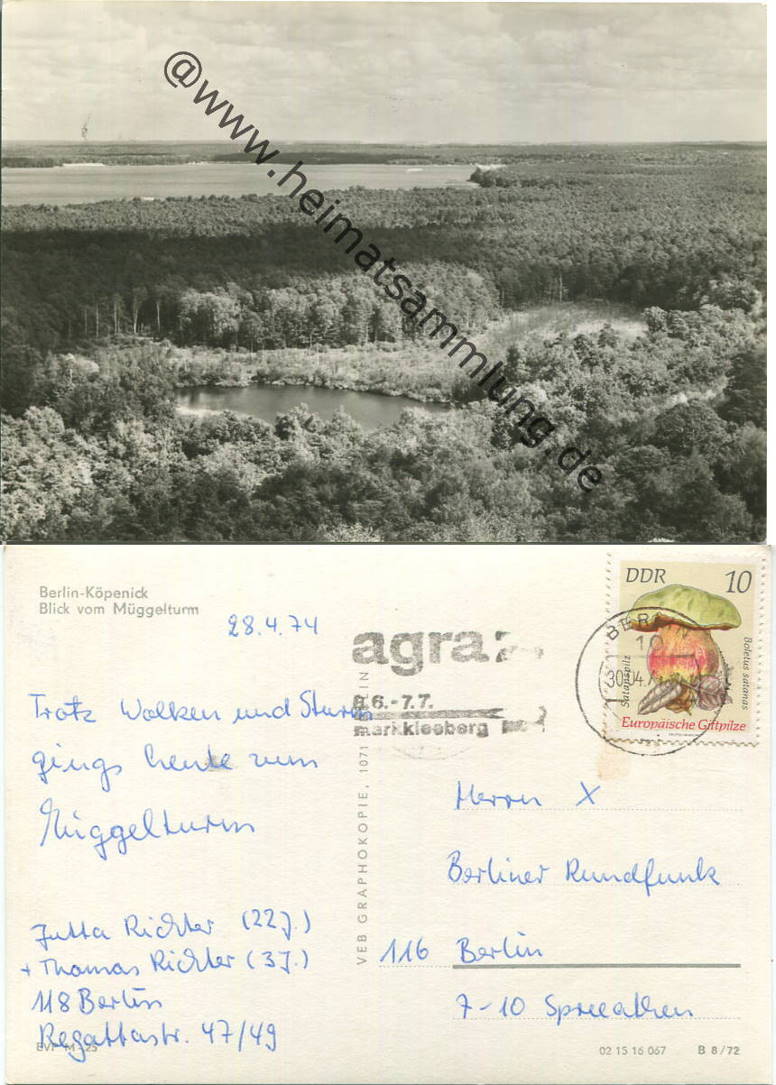 @www.heimatsammlung.de
Berlin-Köpenick
Blick vom Müggelturm
28.4.74
Trotz Wolken und Sturm
gings heute zum
Müggelturm
Jutta Richter (22J.)
+ Thomas Richter (3J.)
118 Berlin
Regattastr. 47/49
EVP M -,25
VEB GRAPHOKOPIE, 1071 BERLIN
agra
6.-7.7.
markkleeberg
BERLIN
10
30.04.
DDR 10
Satanspilz
Boletus satanas
Europäische Giftpilze
Herrn X
Berliner Rundfunk
116 Berlin
7-10 Spreeathen
02 15 16 067 B 8/72